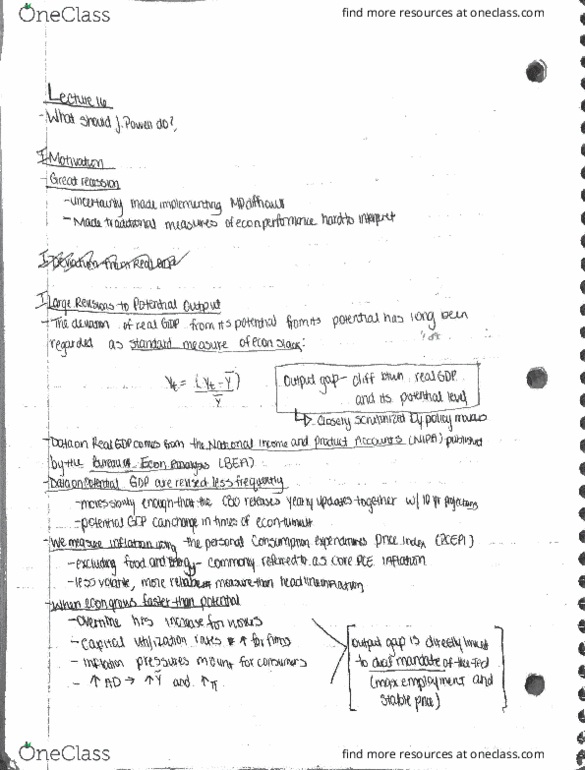 OneClass
find more resources at oneclass.com
Lecture 16
- What should J. Powell do?
I Motivation
- Great recession
- uncertainty made implementing MP difficult
- Made traditional measures of econ performance hard to interpret
I Large Revisions to Potential Output
- The deviation of real GDP from its potential from its potential has long been
regarded as standard measure of econ slack:
Yt = (Yt - Y̅)
Y̅
Output gap - diff btwn real GDP
and its potential level
↳ closely scrutinized by policy makers
- Data on Real GDP comes from the National Income and Product Accounts (NIPA) published
by the Bureau of Econ Analysis (BEA)
- Data on Potential GDP are revised less frequently
- more slowly enough that the CBO releases yearly updates together w/ 10 yr projections
- potential GDP can change in times of econ turmoil
- We measure inflation using the personal consumption expenditures price index (PCEPI)
- excluding food and energy - commonly referred to as core PCE inflation
- less volatile, more reliable measure than headline inflation
- When econ grows faster than potential
- Overtime hrs increase for
- Capital utilization rates ↑ for firms
- Inflation pressures mount for consumers
- ↑ AD → ↑ Y and ↑ π
Output gap is directly linked
to dual mandate of the Fed
(max employment and
stable price)
OneClass
find more resources at oneclass.com